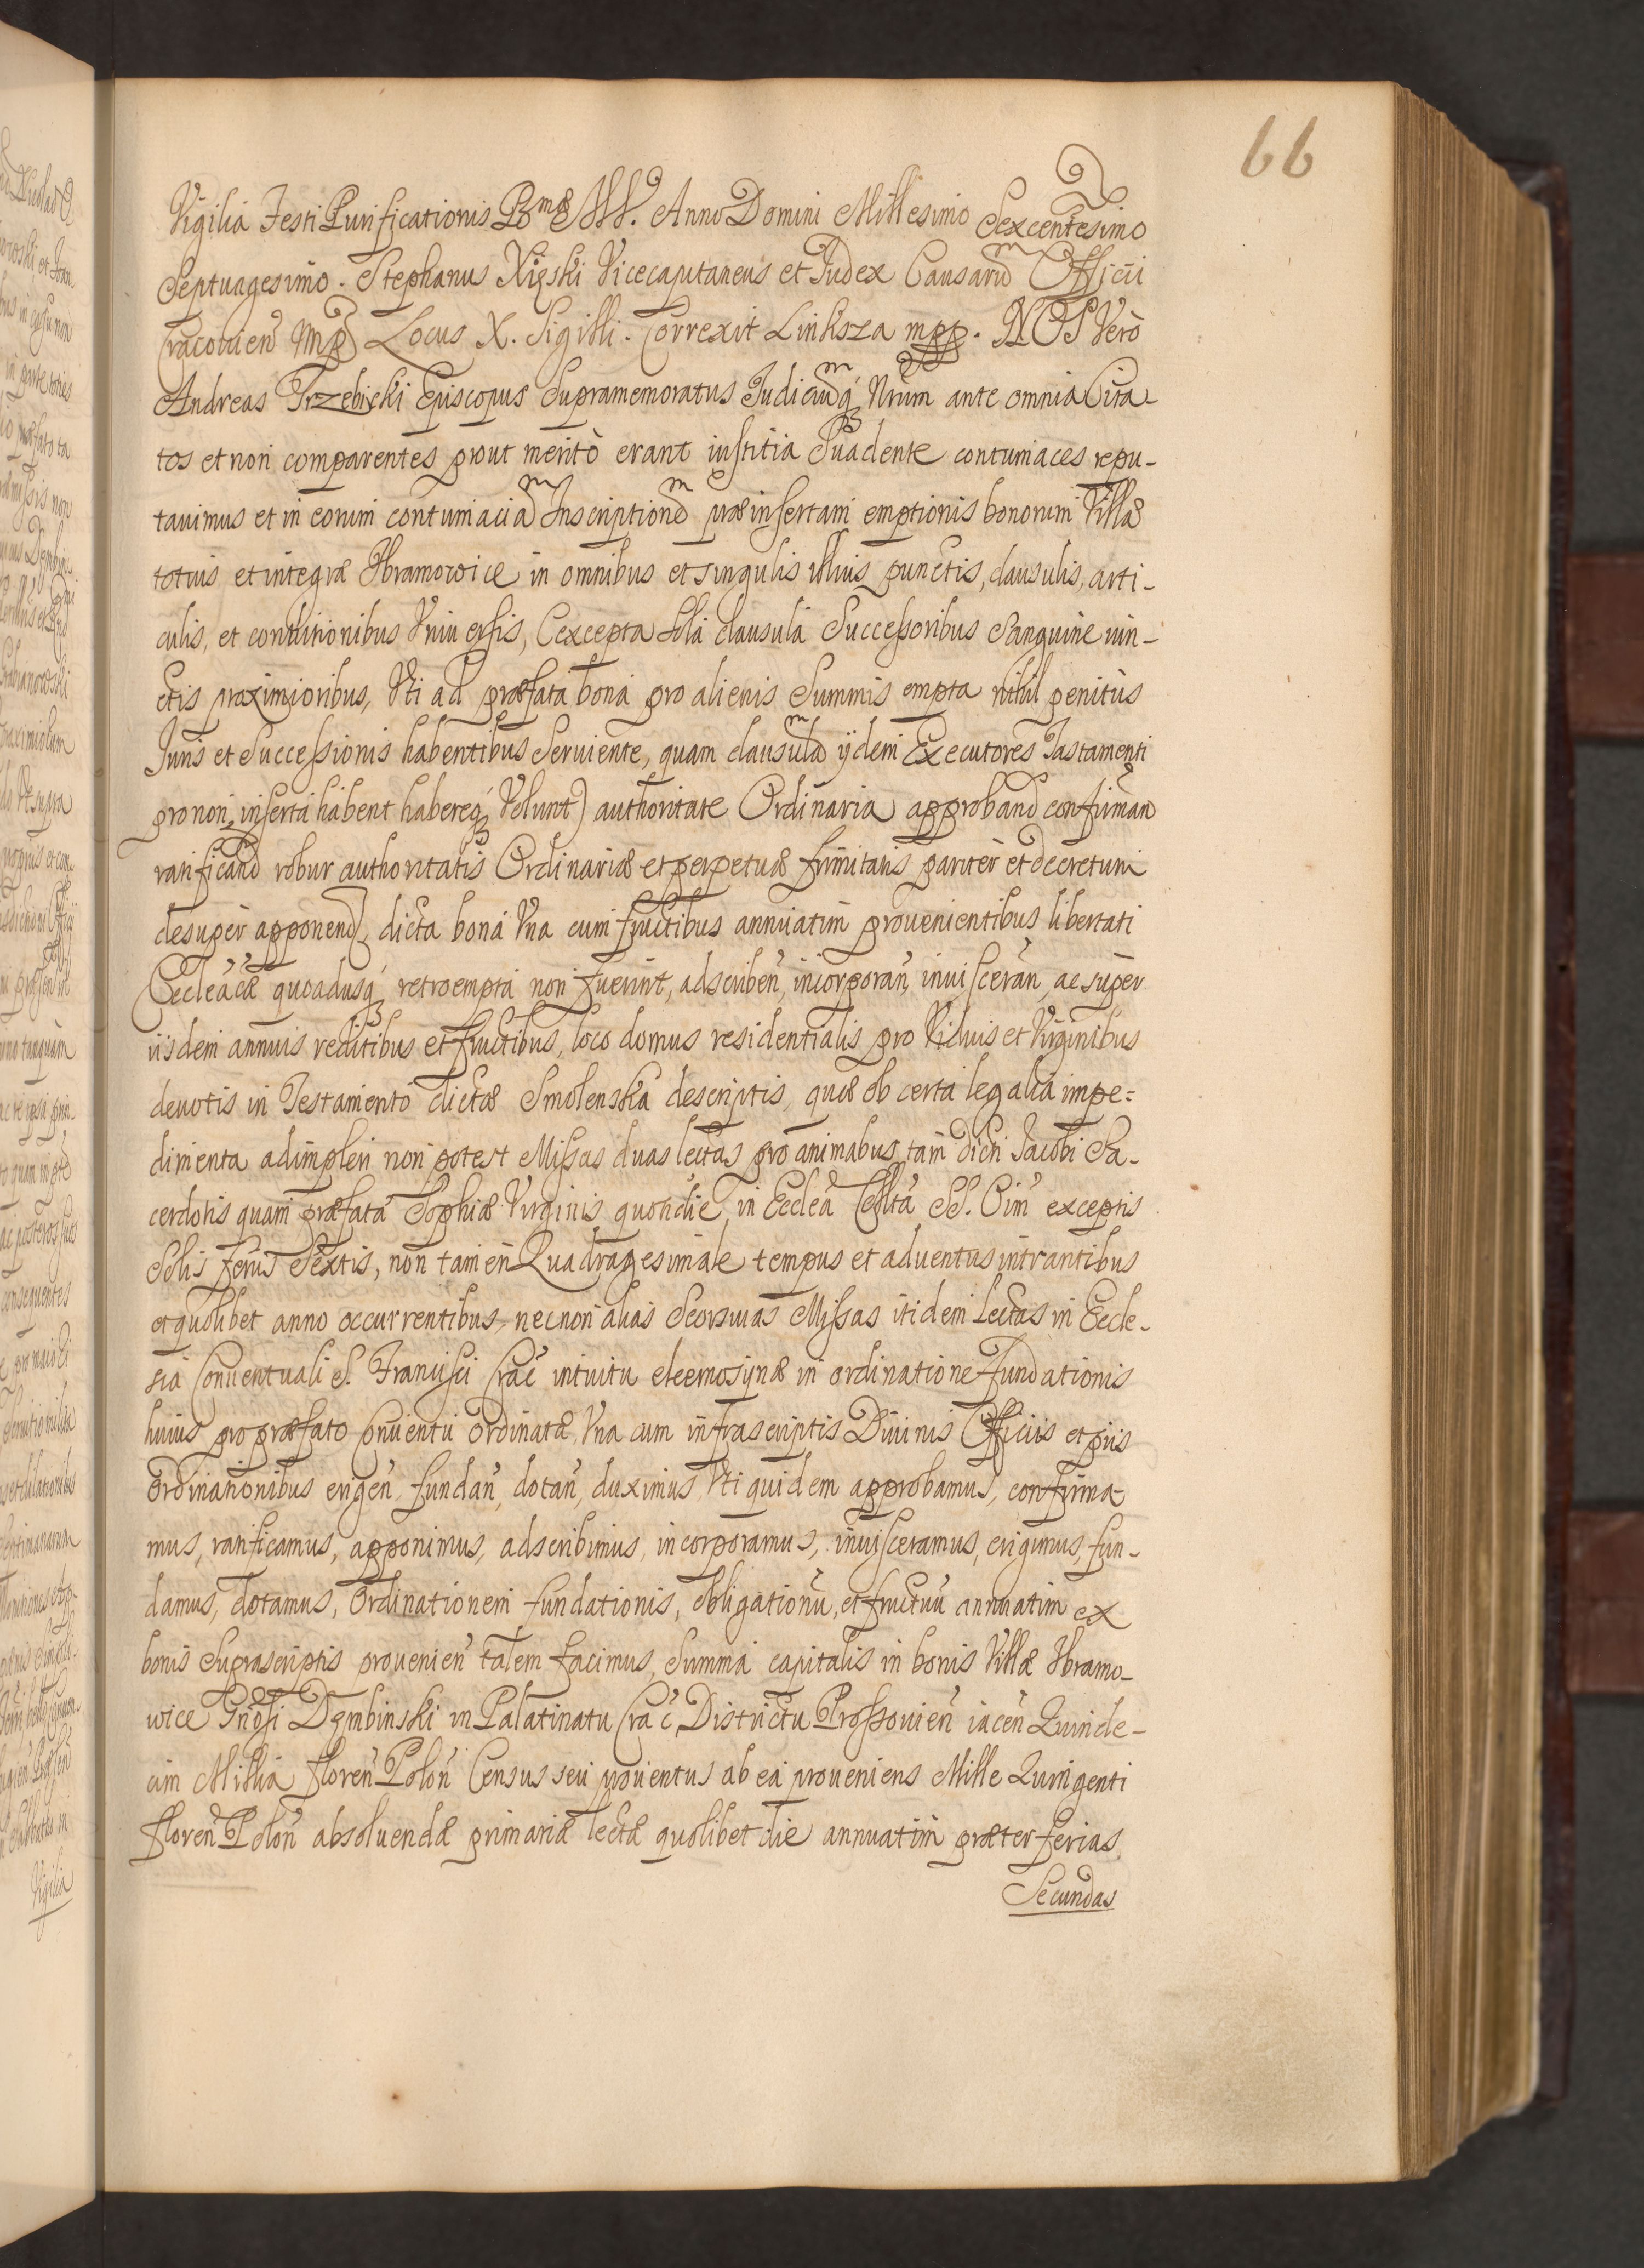 66
Vigilia Festi Purificationis B^mæ M.V. Anno Domini Millesimo Sexcentesimo
Septuagesimo. Stephanus Xięski Vicecapitaneus et Judex Causarū Officii
Cracovien̄ mp Locus X. Sigilli. Correxit Linksza mpp. NOS Verò
Andreas Trzebicki Episcopus Supramemoratus Judiciūq́ Nrūm ante omnia Cita-
tos et non comparentes prout meritò erant iustitia Suadente contumaces repu-
tauimus et in eorum contumaciā Inscriptionē præinsertam emptionis bonorum Villæ
totius et integræ Ibramowice in omnibus et singulis illius punctis, clausulis, arti-
culis, et conditionibus Vniuersis, (excepta sola clausula Successoribus Sanguine uin-
ctis proximioribus, Vti ad præfata bona pro alienis Summis empta nihil penitùs
Juris et Successionis habentibus Seruiente, quam clausulā ijdem Executores Tastamenti
pro non inserta habent habereq́ Volunt) authoritate Ordinaria approband confirman
ratificand robur authoritatis Ordinariæ et perpetuæ firmitatis paritèr et decretum
desupèr apponend, dicta bona Vna cum fructibus annuatim prouenientibus libertati
Eccleācæ quoadusq́ retroempta non fuerint, adscriben̄, incorporan̄, inuisceran̄, ac supèr
iisdem annuis reditibus et fructibus, loco domus residentialis pro Viduis et Virginibus
deuotis in Testamento dictæ Smolenska descriptis, quæ ob certa legalia impe=
dimenta adimpleri non potest Missas duas lectas pro animabus tam dicti Jacobi Sa-
cerdotis quam præfata Sophiæ Virginis quotidie in Ecclēa Cōllta SS. Oīm exceptis
Solis ferijs Sextis, non tamen Quadragesimale tempus et aduentus intrantibus
et quolibet anno occurrentibus, necnon alias Seorsiuas Missas itidem lectas in Eccle-
sia Conuentuali S. Francisci Crac̄ intuitu eleemosijnæ in ordinatione fundationis
huius pro præfato Conuentu ordinatæ, Vna cum infrascriptis Diuinis Officiis et piis
Ordinationibus erigen̄, fundan̄, dotan̄, duximus, Vti quidem approbamus, confirma-
mus, ratificamus, apponimus, adscribimus, incorporamus, inuisceramus, erigimus, fun-
damus, dotamus, Ordinationem fundationis, obligationū, et fructuū annuatim ex
bonis Suprascriptis prouenien̄ talem facimus, Summa capitalis in bonis Villæ Ibramo-
wice Gnōsi Dęmbinski in Palatinatu Crac̄, Districtu Prossouien̄ iacen̄ Quinde-
cim Millia floren̄ Polon̄ Census seu prouentus ab ea proueniens Mille Quingenti
floren̄ Polon̄ absoluendæ primariæ lectæ quolibet die annuatim præter ferias
Secundas